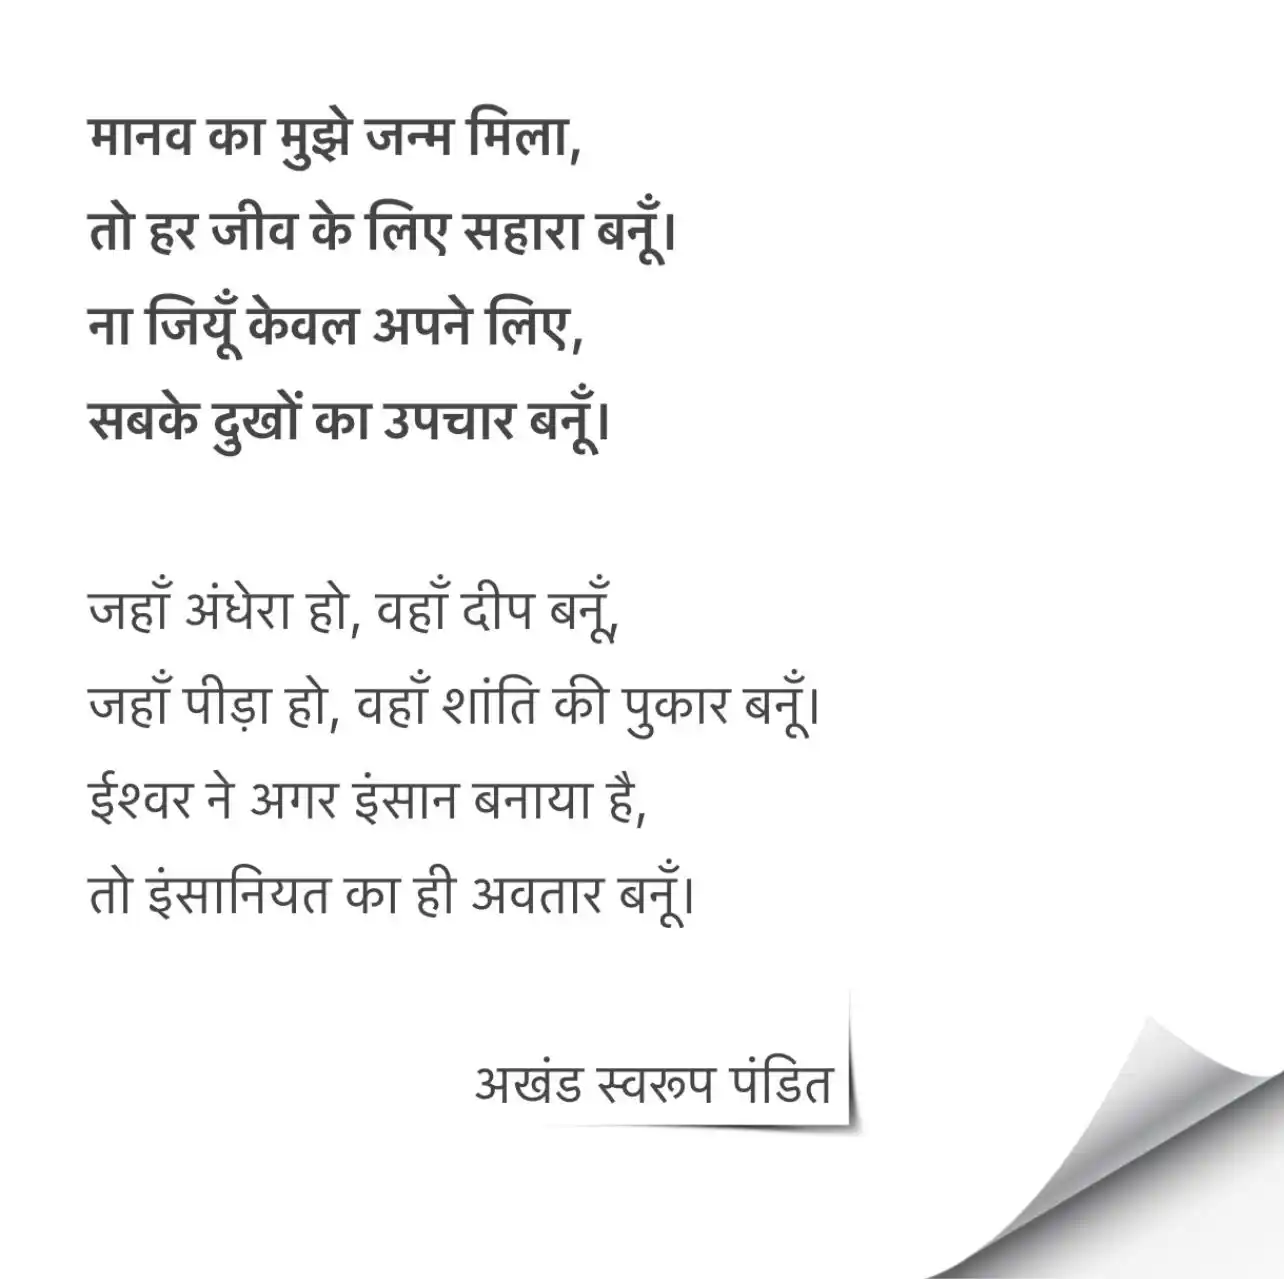 मानव का मुझे जन्म मिला,
तो हर जीव के लिए सहारा बनूँ।
ना जियूँ केवल अपने लिए,
सबके दुखों का उपचार बनूँ।
जहाँ अंधेरा हो, वहाँ दीप बनूँ,
जहाँ पीड़ा हो, वहाँ शांति की पुकार बनूँ।
ईश्वर ने अगर इंसान बनाया है,
तो इंसानियत का ही अवतार बनूँ।
अखंड स्वरूप पंडित